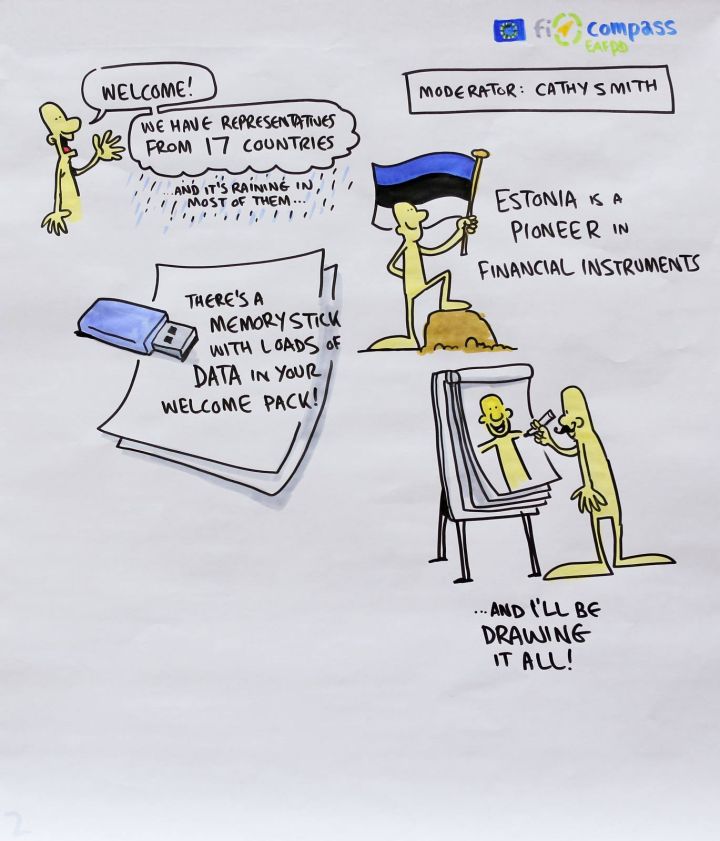 fi compass
EAFRD
MODERATOR: CATHY SMITH
WELCOME!
WE HAVE REPRESENTATIVES
FROM 17 COUNTRIES
...AND IT'S RAINING IN
MOST OF THEM...
ESTONIA IS A
PIONEER IN
FINANCIAL INSTRUMENTS
THERE'S A
MEMORY STICK
WITH LOADS OF
DATA IN YOUR
WELCOME PACK!
...AND I'LL BE
DRAWING
IT ALL!
2